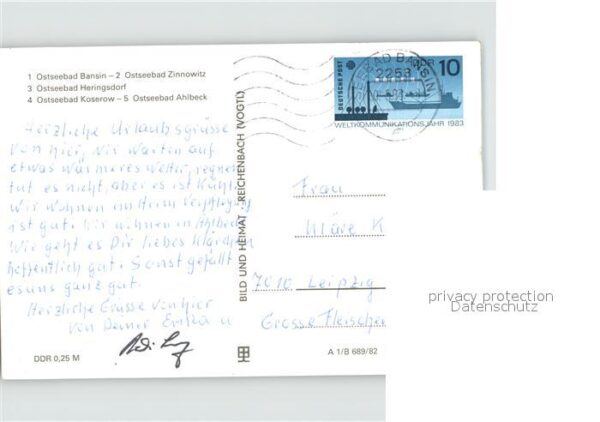 1 Ostseebad Bansin – 2 Ostseebad Zinnowitz
3 Ostseebad Heringsdorf
4 Ostseebad Koserow – 5 Ostseebad Ahlbeck
Herzliche Urlaubsgrüsse
von hier, wir warten auf
etwas wärmeres Wetter, regnen
tut es nicht, aber es ist kühl.
Wir wohnen im Heim Verpflegung
ist gut. Wir wohnen in Ahlbeck
Wie geht es Dir liebes Klärchen
hoffentlich gut. Sonst gefällt
es uns ganz gut.
Herzliche Grüsse von hier
von Deiner Erika u
DDR 0,25 M
BILD UND HEIMAT REICHENBACH (VOGTL)
A 1/B 689/82
DEUTSCHE POST
DDR 10
WELTKOMMUNIKATIONSJAHR 1983
SEEBAD BANSIN
2253
Frau
März K
7010 Leipzig
Grosse Fleischer
privacy protection
Datenschutz